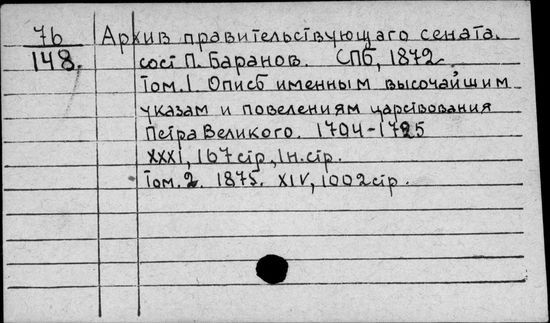 76 Архив правительствующаго сената.
148. сост П. Баранов. СПб, 1872
Том. 1 Опись именным высочайшим
указам и повелениям царствования
Петра Великого. 1704-1725
XXXI, 167 стр, 1 н. стр.
Том. 2. 1875. XIV, 1002 стр.